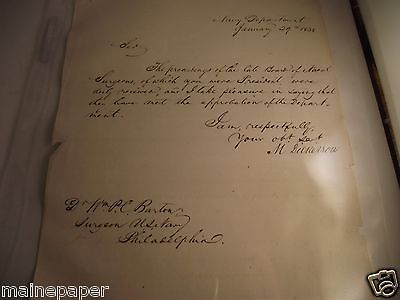 Navy Department
January 29th 1838
Sir,
The proceedings of the late Board of Naval
Surgeons, of which you were President were
duly received, and I take pleasure in saying that
they have met the approbation of the Depart
ment.
I am, respectfully,
Your obt Sert
M Dickerson
Dr Wm P. C. Barton
Surgeon US Navy
Philadelphia.
mainepaper